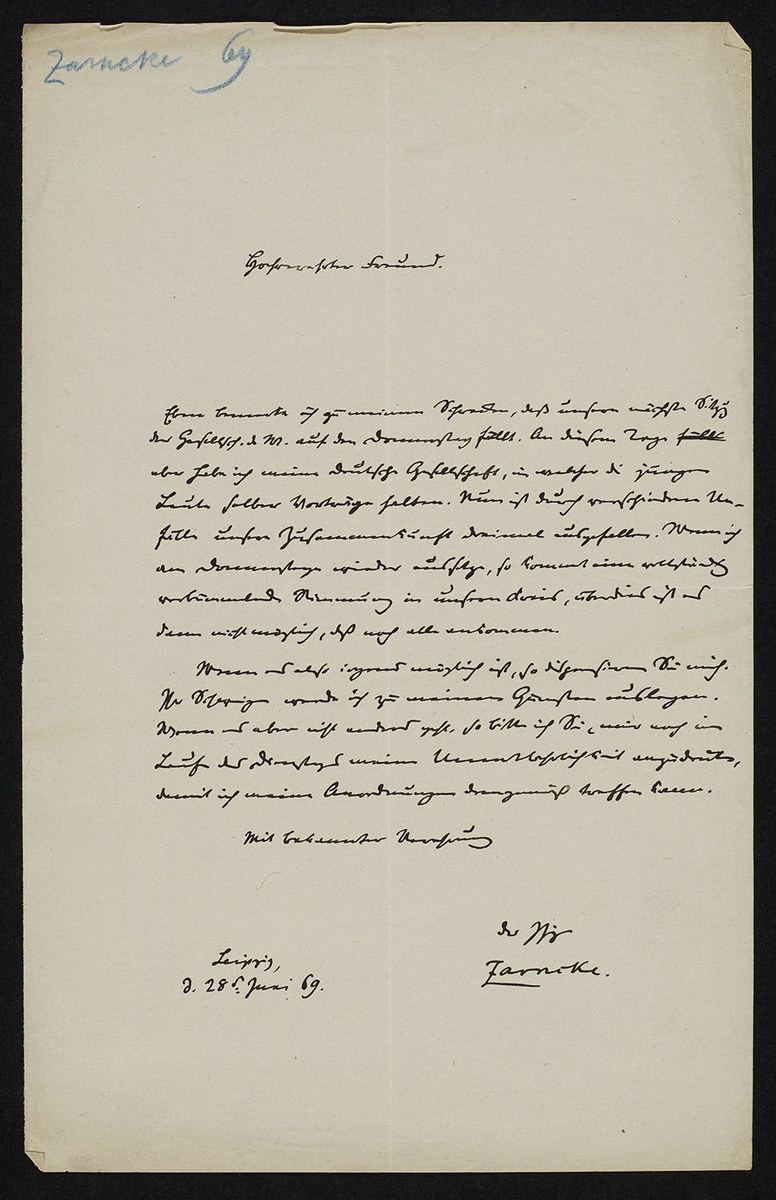 Zarncke 69
Hochverehrter Freund.
Eben bemerke ich zu meinem Schrecken, daß unsere nächste Sitzg
der Gesellsch. d. W. auf den Donnerstag fällt. An diesem Tage fällt
aber habe ich meine deutsche Gesellschaft, in welcher die jungen
Leute selber Vorträge halten. Nun ist durch verschiedene Un-
fälle unsere Zusammenkunft dreimal ausgefallen. Wenn ich
am Donnerstage wieder aussetze, so kommt eine vollständig
verbummelnde Stimmung in unsern Kreis, überdies ist es
dann nicht möglich, daß noch alle ankommen.
Wenn es also irgend möglich ist, so dispensiren Sie mich.
Ihr Schweigen werde ich zu meinen Gunsten auslegen.
Wenn es aber nicht anders geht, so bitte ich Sie, mir noch im
Laufe des Dienstags meine Unentbehrlichkeit anzudeuten,
damit ich meine Anordnungen demgemäß treffen kann.
Mit bekannter Verehrung
der Ihrige
Zarncke.
Leipzig,
d. 28 Juni 69.